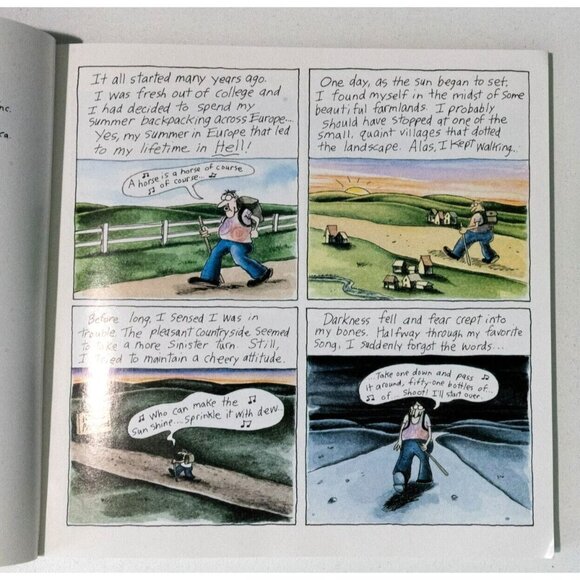 nc.
ra.
It all started many years ago.
I was fresh out of college and
I had decided to spend my
summer backpacking across Europe...
Yes, my summer in Europe that led
to my lifetime in Hell!
♫ A horse is a horse of course
♫ of course... ♫
One day, as the sun began to set,
I found myself in the midst of some
beautiful farmlands. I probably
should have stopped at one of the
small, quaint villages that dotted
the landscape. Alas, I kept walking...
Before long, I sensed I was in
trouble. The pleasant countryside seemed
to take a more sinister turn. Still,
I tried to maintain a cheery attitude.
♫ Who can make the ♫
sun shine... sprinkle it with dew...
♫
Darkness fell and fear crept into
my bones. Halfway through my favorite
song, I suddenly forgot the words...
Take one down and pass ♫
♫ it around, fifty-one bottles of..
♫ of... Shoot! I'll start over..